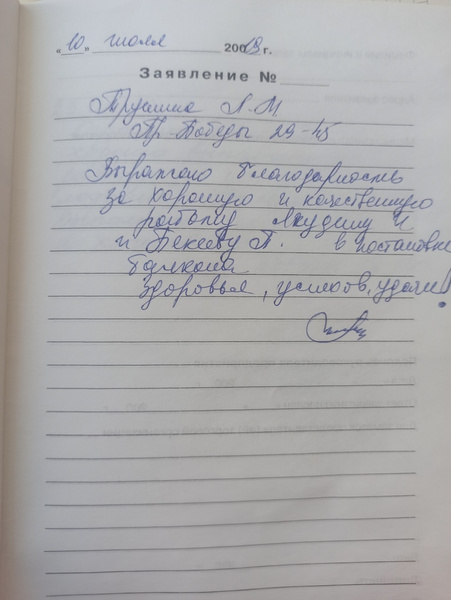 «10» июля 2009 г.
Заявление №
Л. М
Пр. Победы 29-45
Выражаю благодарность
за хорошую и качественную
работу Якудину И
и Бекееву П. в постановке
балкона
Здоровья, успехов, удачи!